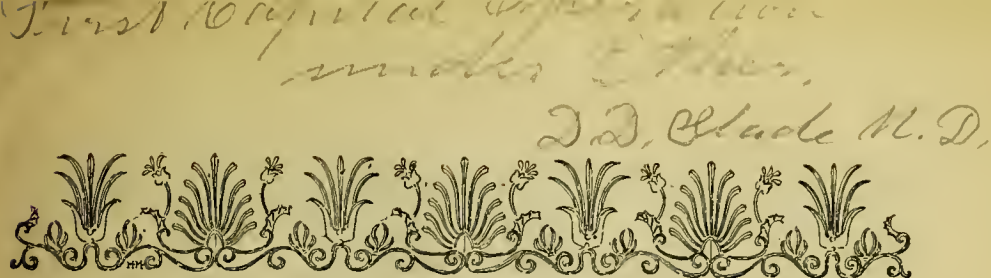 First Capital Operation
under Ether.
D.D. Slade M.D.